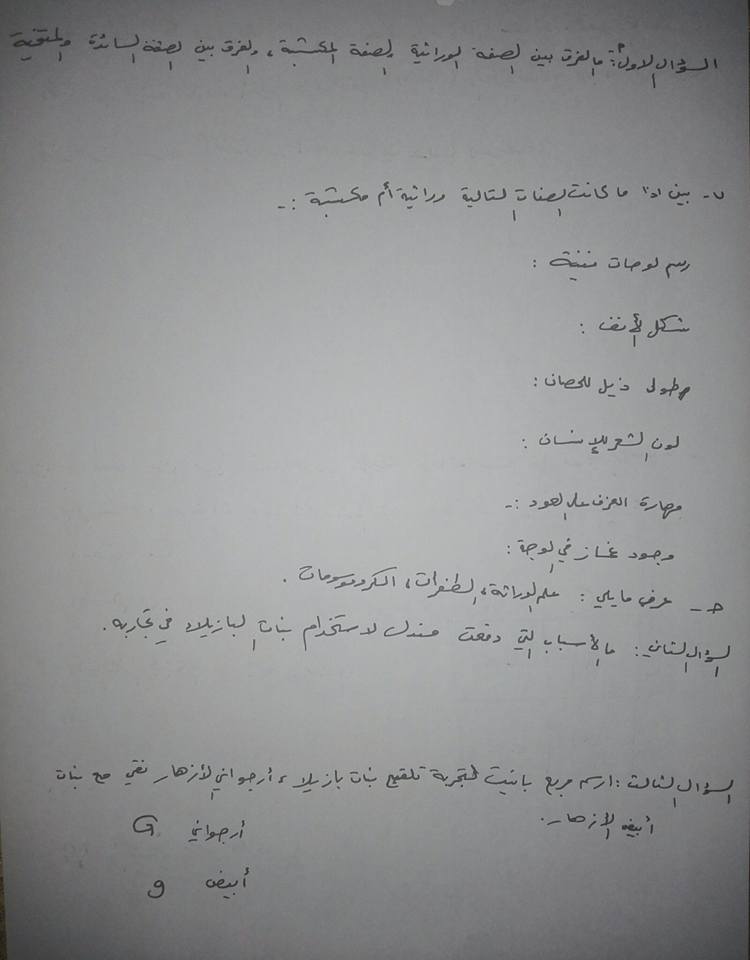 السؤال الاول: أ- ما الفرق بين الصفة الوراثية والصفة المكتسبة، والفرق بين الصفة السائدة والمتنحية
ب- بين اذا ما كانت الصفات التالية وراثية أم مكتسبة :-
رسم لوحات فنية :
شكل الأنف :
طول ذيل للحصان :
لون الشعر للإنسان :
مهارة العزف على العود :-
وجود غماز في الوجة :
جـ - عرف ما يلي : علم الوراثة، الطفرات، الكروموسومات .
السؤال الثاني : ما الأسباب التي دفعت مندل لاستخدام نبات البازيلاء في تجاربه .
السؤال الثالث : ارسم مربع بانيت لتجربة تلقيح نبات بازيلاء أرجواني الأزهار نقي مع نبات
أبيض الأزهار.
أرجواني G
أبيض g